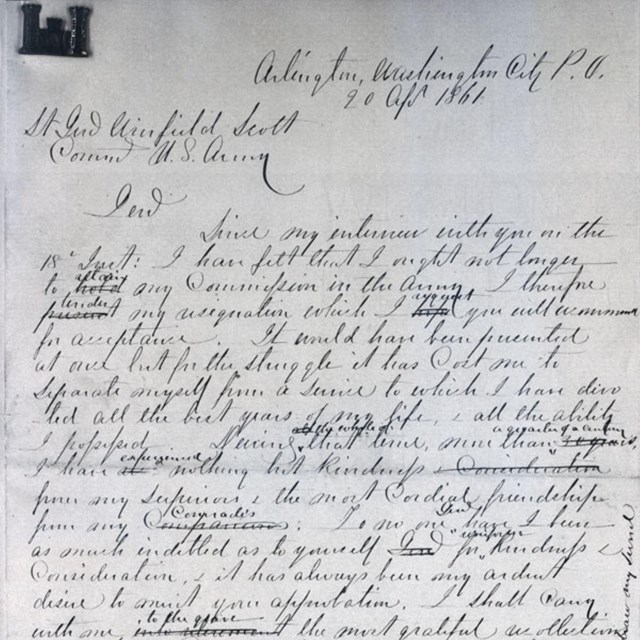 Arlington, Washington City P. O.
20 Apl 1861
Lt Genl Winfield Scott
Commd U. S. Army
Genl
Since my interview with you on the
18th Inst: I have felt that I ought not longer
retain
to hold my Commission in the Army. I therefore
tender request
present my resignation which I hope you will recommend
for acceptance. It would have been presented
at once but for the struggle it has Cost me to
separate myself from a service to which I have devo
ted all the best years of my life, & all the ability
I possessed. During the whole of that time, more than a quarter of a century 30 years,
experienced
I have nothing but Kindness & Consideration
from my superiors & the most Cordial friendship
Comrades Genl
from my Companions: To no one have I been
uniform
as much indebted as to yourself Genl for Kindness &
Consideration, & it has always been my ardent
desire to merit your approbation. I shall Carry
to the grave
with me, the most grateful recollection